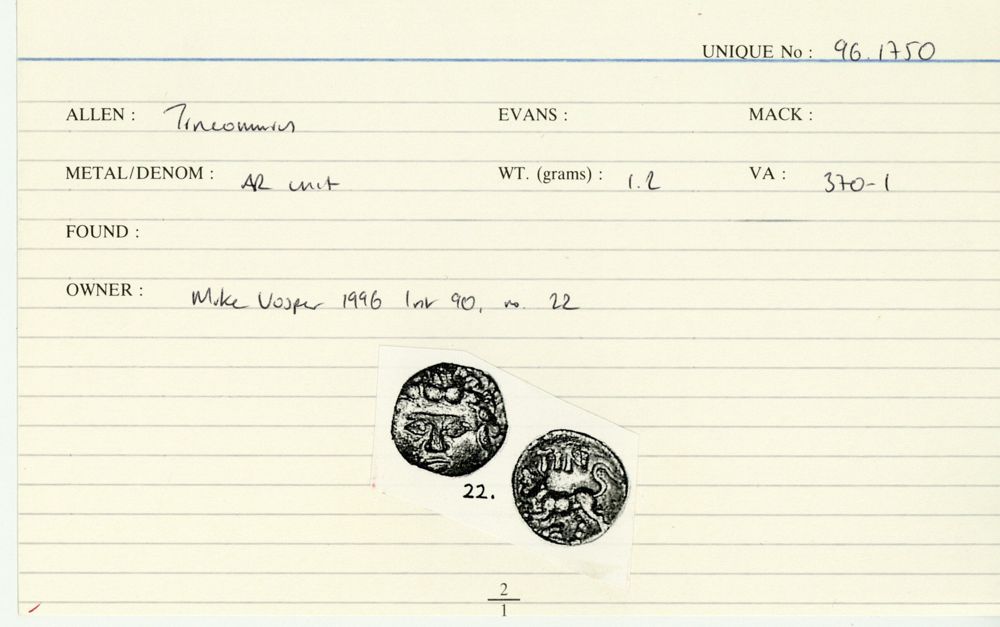 UNIQUE No : 96.1750
ALLEN : Tincommius EVANS : MACK :
METAL/DENOM : AR unit WT. (grams) : 1.2 VA : 370-1
FOUND :
OWNER : Mike Vosper 1996 list 90, no. 22
TIN
22.
2
1